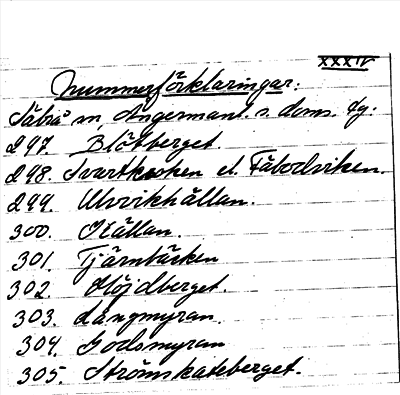 XXXIV
Nummerförklaringar:
Säbrå sn, Ångermanl. s. doms. fg.
297. Blötberget.
298. Svartkroken el. Fäbodviken.
299. Ulvvikhällan.
300. Källan.
301. Tjärnbäcken
302. Höjdberget.
303. Långmyran.
304. Godsmyran
305. Strömskateberget.